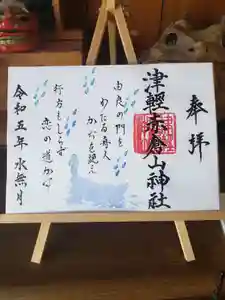 奉拝
津軽赤倉山神社
由良の門を
わたる舟人
かぢを絶え
行方もしらぬ
恋の道かな
令和五年 水無月